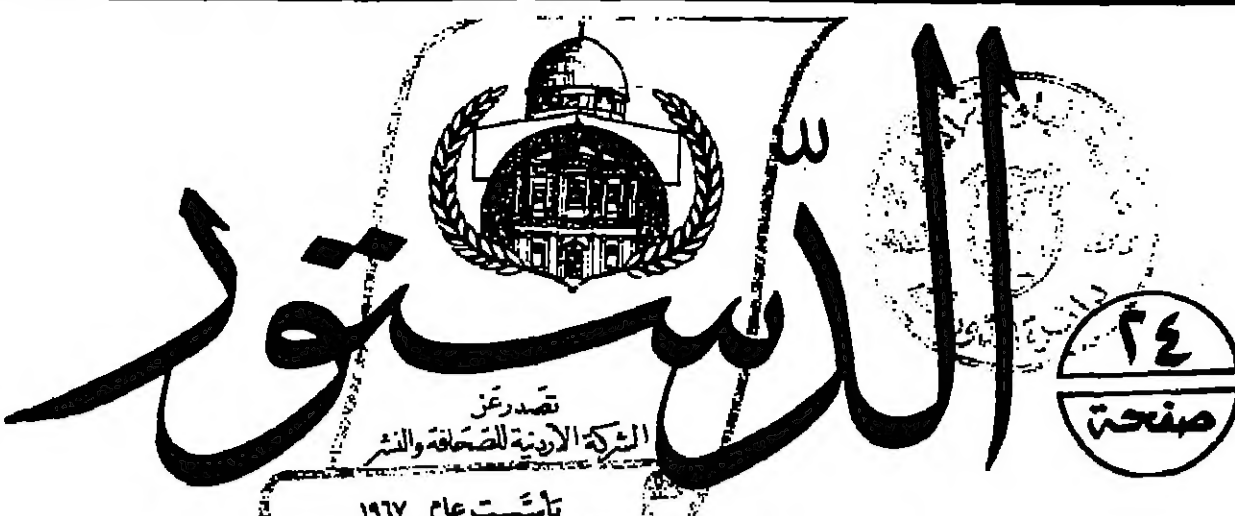 الدّستور
٢٤
صفحة
تصدر عن
الشركة الأردنية للصحافة والنشر
تأسست عام ١٩٦٧